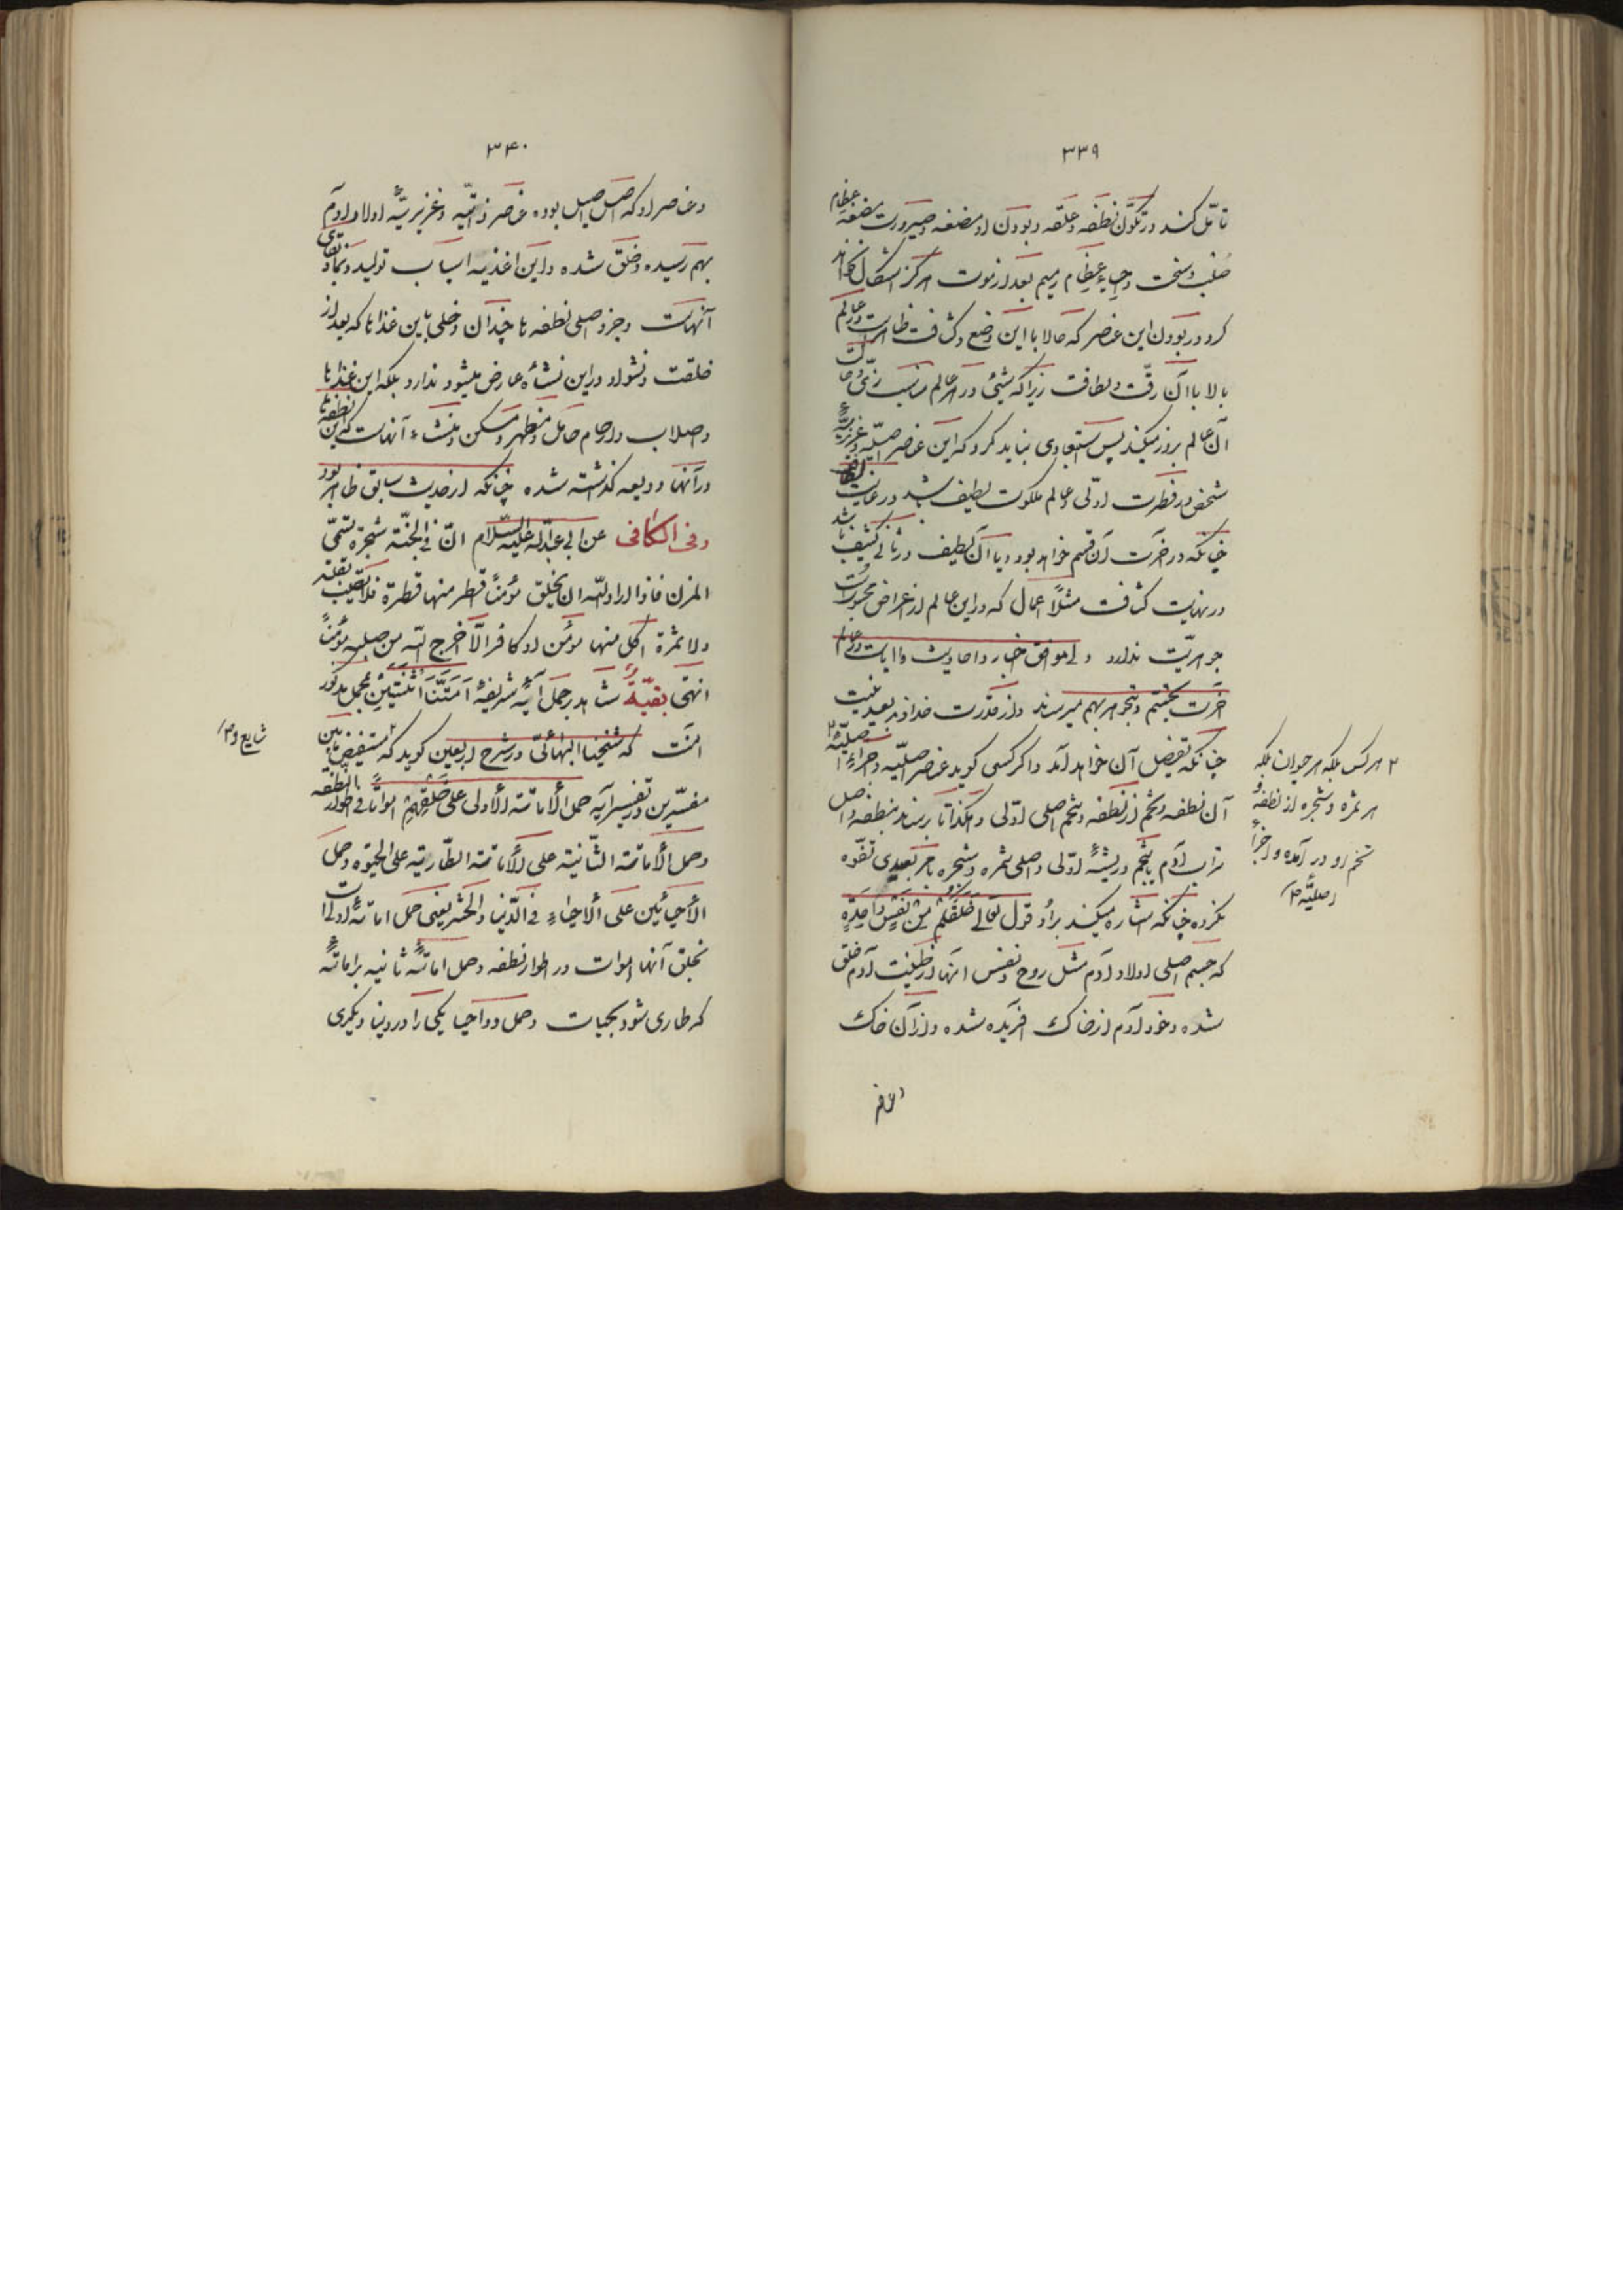 ۳۳۹
تأمّل کند در تکوّن نطفه و علقه و بودن او مضغه و صیرورت مضغه عظام
صلب و سخت و احیاء عظام رمیم بعد از موت هرگز اشکال نخواهد
کرد در بودن این عناصر که حالا با این وضع و کثافت ظاهر است در عالم
بالا با آن رقّت و لطافت زیرا که شیئی در هر عالم مناسب زیّ و حالت
آن عالم بروز میکند پس استبعادی نباید کرد که این عناصر اصلیّه و غریزیّهٔ
شخص در فطرت اوّلی و عالم ملکوت لطیف باشد در غایت لطافت
چنانکه در آخرت آن قسم خواهد بود و با آن لطیف در ثانی کثیف باشد
در نهایت کثافت مثلاً اعمال که در این عالم از اعراض محسوبست
جوهریّت ندارد ولی موافق اخبار و احادیث و آیات در عالم
آخرت تجسّم و تجوهر بهم میرساند و از قدرت خداوند بعید نیست
چنانکه تفصیل آن خواهد آمد و اگر کسی گوید عناصر اصلیّه و اجزاء اصلیّهٔ ۲
آن نطفه و تخم از نطفه و تخم اصلی اوّلی و هکذا تا برساند بنطفه و اصل
تراب آدم یا بتخم و ریشهٔ اوّلی و اصلی ثمره و شجره باز بعیدی تفوّه
نکرده چنانکه اشاره میکند بر او قول تعالی خَلَقَکُم مِن نَفسٍ واحِدَةٍ
که جسم اصلی اولاد آدم مثل روح و نفس آنها از طینت آدم خلق
شده و خود آدم از خاک آفریده شده و از آن خاک
و عناصر
۲ هر کس بلکه هر حیوان بلکه
هر ثمره و شجره از نطفه و
تخم او در آمده و اجزاء
اصلیّه ص
۳۴۰
و عناصر او که اصل اصیل بوده عناصر ذاتیّه و غریزیّهٔ اولاد آدم
بهم رسیده و خلق شده و این اغذیه اسباب تولید و نما و بقای
آنهاست و جزو اصلی نطفه ها چندان دخلی باین غذاها که بعد از
خلقت و نشو او در این نشأه عارض میشود ندارد بلکه این غذاها
و اصلاب و ارحام حامل و مظهر و مسکن و منشاء آنهاست که این نطفها
در آنها ودیعه گذاشته شده چنانکه از حدیث سابق ظاهر بود
وفی الکافی عن ابی عبدالله علیه السّلام انّ فی الجنّة شجرة تسمّی
المزن فاذا اراد الله ان یخلق مؤمناً قطر منها قطرة فلا تصیب بقلة
ولا ثمرة اکل منها مؤمن او کافر الّا اخرج الله من صلبه مؤمناً
انتهی بقیّهٔ شاهد بر حمل آیهٔ شریفهٔ اَمَتَّنَا اثْنَتَیْنِ بمحل مذکور
آنست که شیخنا البهائیّ در شرح اربعین گوید که ۲ مستفیض مابین
مفسّرین در تفسیر آیه حمل الأماتة الأولی علی خَلْقِهِمْ امواتاً فی اطوار النطفة
و حمل الأماتة الثّانیة علی الأماتة الطّاریة علی الحیوة و حمل
الأحیائین علی الأحیاء فی الدّنیا و الحشر یعنی حمل اماتهٔ اولی است
بخلق آنها اموات در اطوار نطفه و حمل اماتهٔ ثانیه بر اماتهٔ
که طاری شود بحیات و حمل دو احیا یکی را در دنیا و دیگری
شایع و ۲